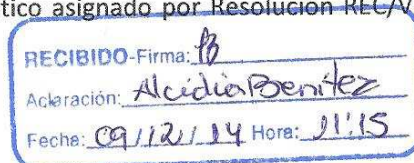 tico asignado por Resolución REC/V
RECIBIDO-Firma: B
Aclaración: Alcidia Benitez
Fecha: 09/12/14 Hora: 11:15